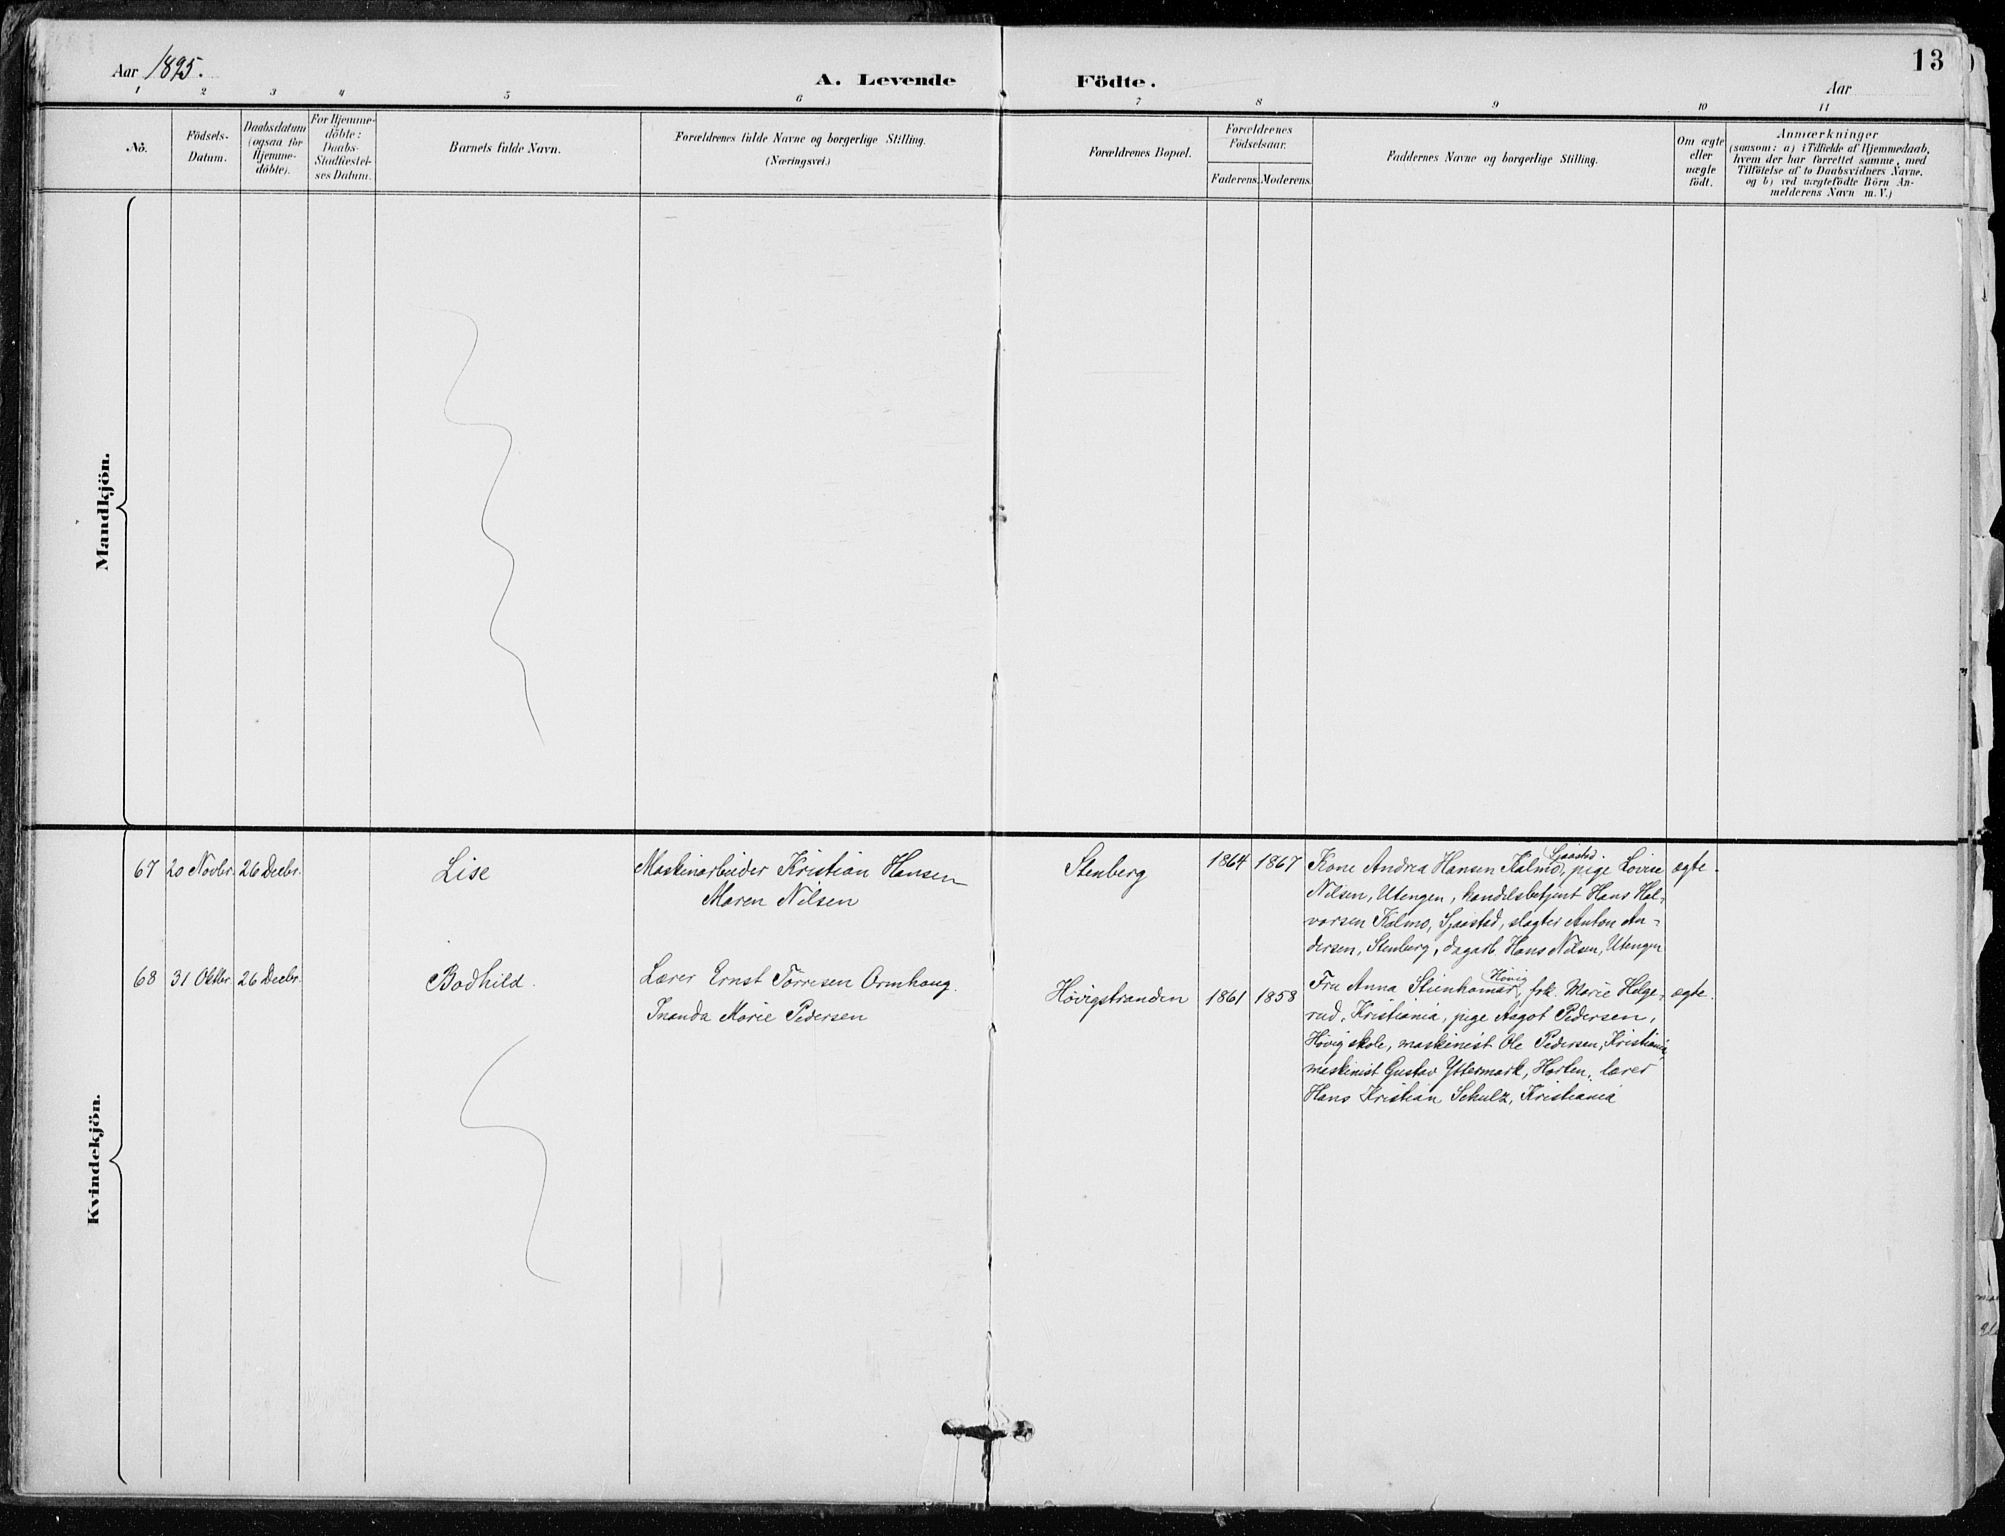 Aar 1895.
A. Levende Födte.
13
Aar
1 2 3 4 5 6 7 8 9 10 11
Nô.
Födsels-
Datum.
Daabsdatum
(ogsaa for
Hjemme-
döbte).
For Hjemme-
döbte:
Daabs-
Stadfæstel-
ses Datum.
Barnets fulde Navn.
Forældrenes fulde Navne og borgerlige Stilling.
(Næringsvei.)
Forældrenes Bopæl.
Forældrenes
Födselsaar.
Faderens. Moderens.
Faddernes Navne og borgerlige Stilling.
Om ægte
eller
uægte
födt.
Anmærkninger
(saasom: a) i Tilfælde af Hjemmedaab,
hvem der har forrettet samme, med
Tilföielse af to Daabsvidners Navne,
og b) ved uægtefödte Börn An-
melderens Navn m. V.)
Mandkjön.
Kvindekjön.
67 20 Novbr. 26 Decbr. Lise
Maskinarbeider Kristian Hansen
Maren Nilsen
Stenberg 1864 1867
Kone Andrea Hansen Kalmo, Sjaastad, pige Lovise
Nilsen, Utengen, handelsbetjent Hans Hal-
vorsen Kalmo, Sjaastad, slagter Anton An-
dersen, Stenberg, dagarb. Hans Nilsen, Utengen
ægte.
68 31 Oktbr. 26 Decbr. Bodhild.
Lærer Ernst Torresen Ormhaug.
Inanda Marie Pedersen
Høvigstranden 1861 1858
Fru Anna Steinhamar, Høvig, frk. Marie Helge-
rud, Kristiania, pige Aagot Pedersen,
Høvig skole, maskinist Ole Pedersen, Kristiania,
maskinist Gustav Yttermark, Horten, lærer
Hans Kristian Schulz, Kristiania
ægte.